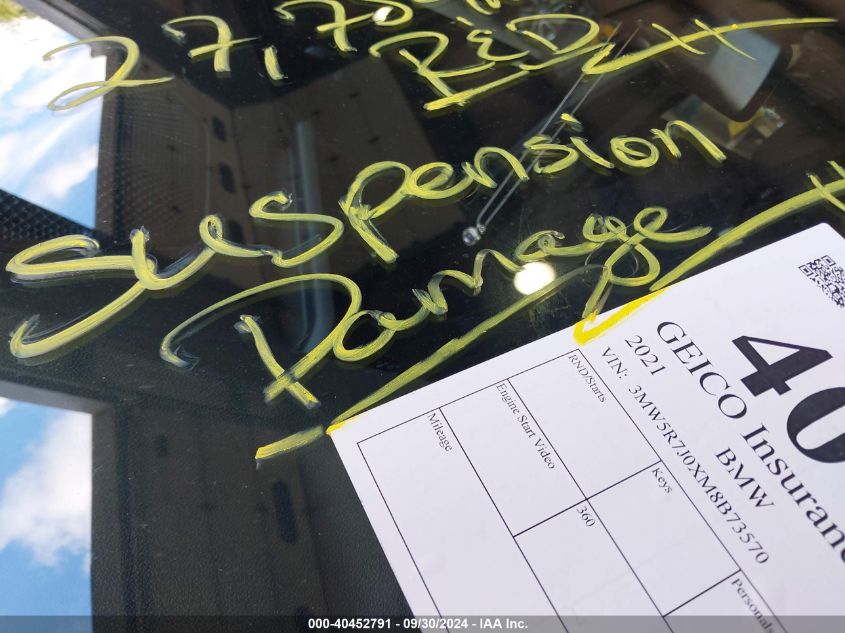 27,75
R&D
Suspension
Damage
40
GEICO Insuran
2021 BMW
VIN: 3MW5R7J0XM8B73570
RND/Starts Keys
Engine Start Video 360 Personal
Mileage
000-40452791 - 09/30/2024 - IAA Inc.